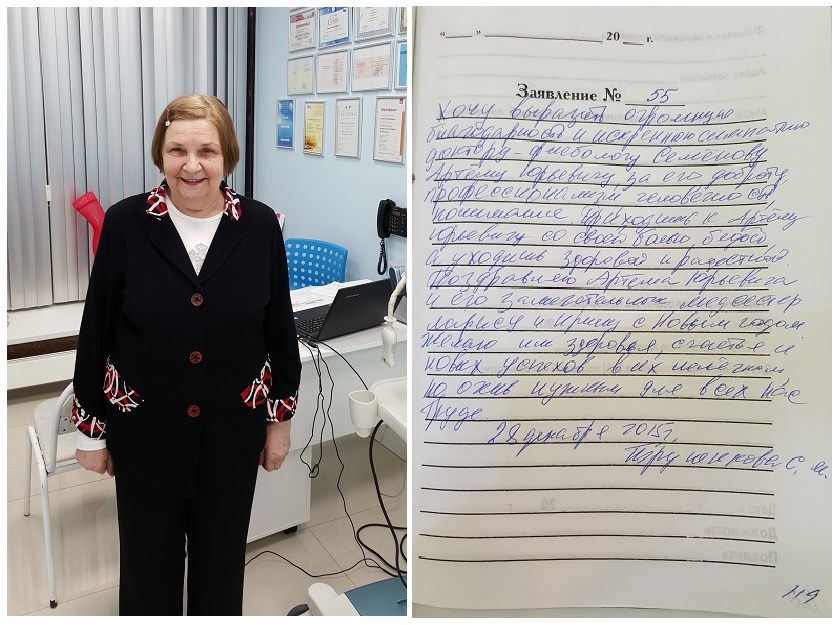 “___” ____________ 20 ___ г.
Заявление № 55
Хочу выразить огромную
благодарность и искреннюю симпатию
доктору-флебологу Семёнову
Артёму Юрьевичу за его доброту
профессионализм человечность
понимание Приходишь к Артёму
Юрьевичу со своей болью, бедой
а уходишь здоровой и радостной.
Поздравляю Артёма Юрьевича
и его замечательных медсестёр
Ларису и Ирину с Новым годом
Желаю им здоровья, счастья и
новых успехов в их нелёгком
но очень нужном для всех нас
труде.
28 декабря 2015г.
С. М.
119